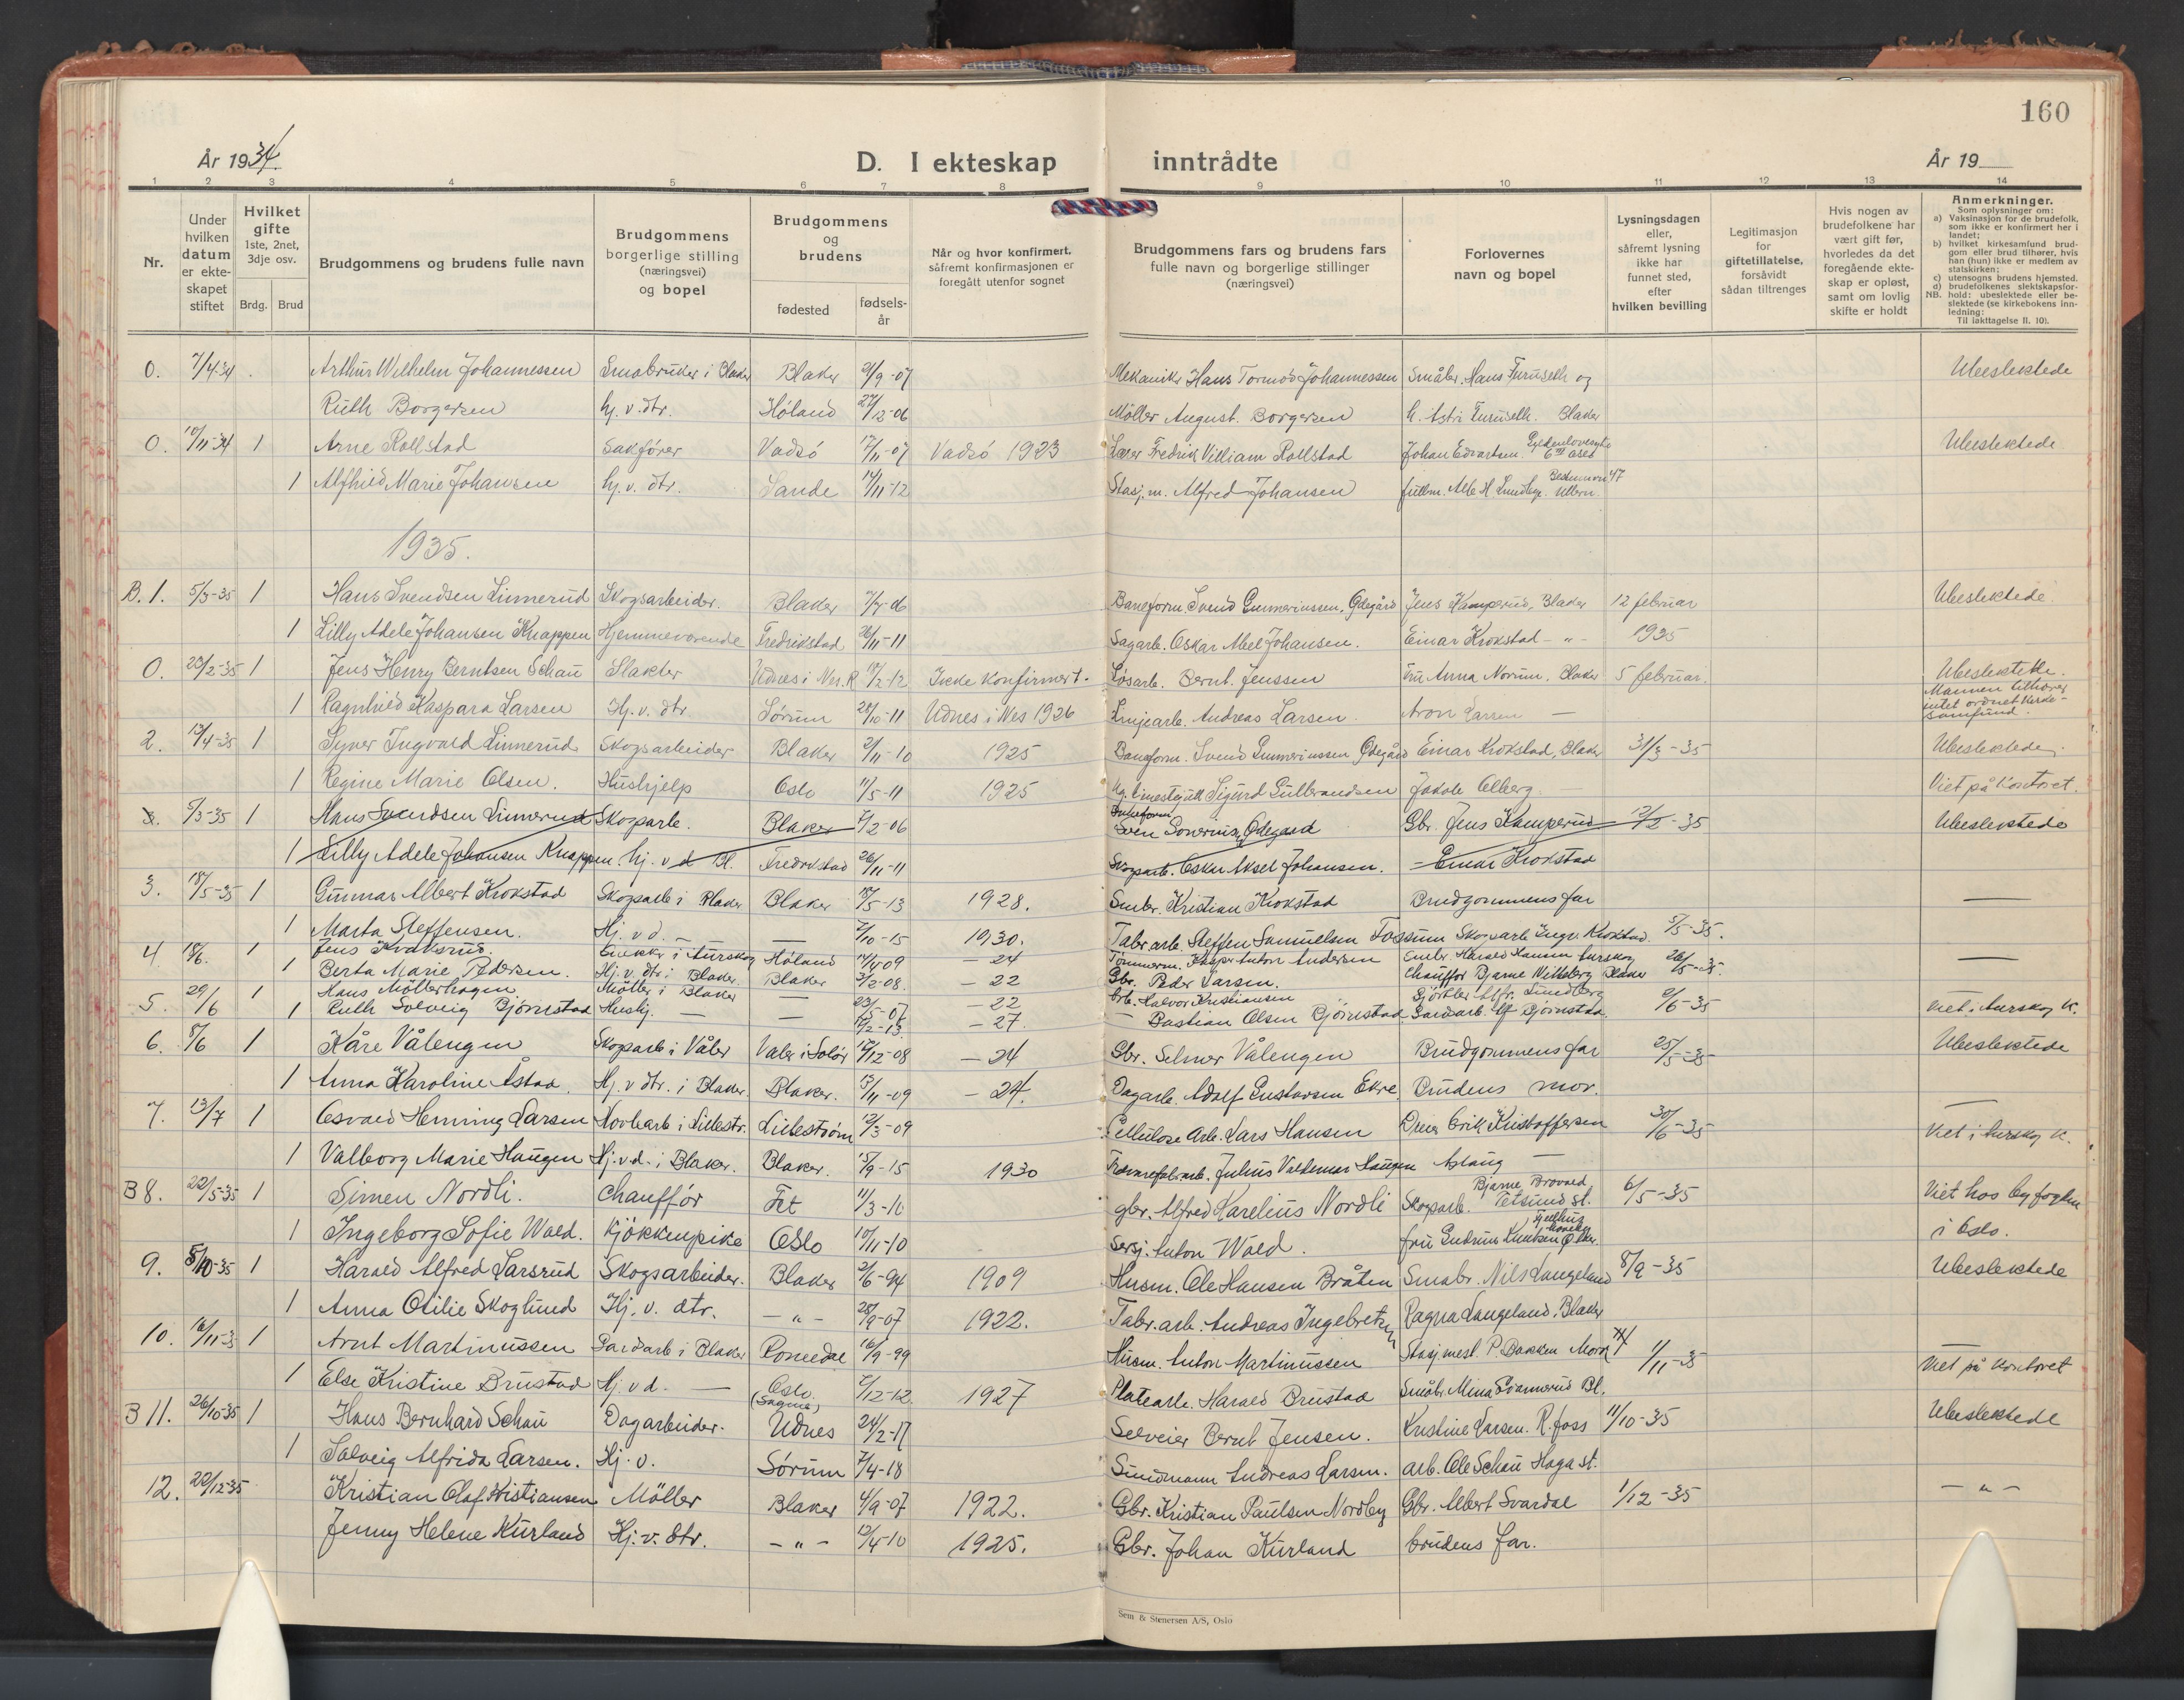 160
År 1934. D. I ekteskap inntrådte År 19
1 2 3 4 5 6 7 8 9 10 11 12 13 14
Nr.
Under hvilken datum er ekteskapet stiftet
Hvilket gifte 1ste, 2net, 3dje osv.
Brdg. Brud
Brudgommens og brudens fulle navn
Brudgommens borgerlige stilling (næringsvei) og bopel
Brudgommens og brudens
fødested fødselsår
Når og hvor konfirmert, såfremt konfirmasjonen er foregått utenfor sognet
Brudgommens fars og brudens fars fulle navn og borgerlige stillinger (næringsvei)
Forlovernes navn og bopel
Lysningsdagen eller, såfremt lysning ikke har funnet sted, efter hvilken bevilling
Legitimasjon for giftetillatelse, forsåvidt sådan tiltrenges
Hvis nogen av brudefolkene har vært gift før, hvorledes da det foregående ekteskap er opløst, samt om lovlig skifte er holdt
Anmerkninger.
Som oplysninger om:
a) Vaksinasjon for de brudefolk, som ikke er konfirmert her i landet;
b) hvilket kirkesamfund brudgom eller brud tilhører, hvis han (hun) ikke er medlem av statskirken;
c) utensogns brudens hjemsted.
d) brudefolkenes slektskapsforhold: ubeslektede eller beslektede (se kirkebokens innledning:
NB.
Til iakttagelse II. 10).
0. 7/4-34 Arthur Wilhelm Johannessen Småbruker i Blaker Blaker 9/9-07 Mekaniker Hans Tormod Johannessen Småbr. Hans Furuseth og Ubeslektede
Ruth Borgersen hj. v. dtr. Høland 27/12-06 Möller August Borgersen h. Astri Furuseth. Blaker
0. 10/11-34 1 Arne Rollstad Sakfører Vadsö 17/11-07 Vadsö 1923 Lærer Fredrik William Rollstad Johan Edvartsen Ubeslektede
1 Alfhild Marie Johansen hj. v. dtr. Sande 14/11-12 Stasj.m. Alfred Johansen
1935.
B. 1. 5/3-35 1 Hans Svendsen Linnerud Skogsarbeider. Blaker 7/2-06 Baneform. Svend Gunneriussen, Ødegård Jens Kamperud, Blaker 12 februar Ubeslektede
1 Lilly Adele Johansen Knappen Hjemmeværende Fredrikstad 26/11-11 Sagarb. Oskar Axel Johansen. Einar Krokstad - " - 1935
0. 23/2-35 1 Jens Henry Berntsen Schau Slakter Udnes i Nes. R 17/2-12 Ikke konfirmert. Løsarb. Bernt Jenssen Fru Anna Norum. Blaker 5 februar. Ubeslektede.
1 Ragnhild Kaspara Larsen Hj. v. dtr. Sørum 28/10-11 Udnes i Nes 1926 Linjearb. Andreas Larsen. Aron Larsen — Mannen tilhører intet ordnet kirkesamfund.
2. 13/4-35 1 Syver Ingvald Linnerud Skogsarbeider Blaker 2/11-10 1925 Baneform. Svend Gunneriussen Ødegård Einar Krokstad, Blaker 31/3-35 Ubeslektede.
1 Regine Marie Olsen. Hushjelp Oslo 11/5-11 1925 Sigurd Gulbrandsen Jakob Olberg. Viet på kontoret.
3. 5/3-35 1 Hans Svendsen Linnerud Skogsarb. Blaker 7/2-06 Baneform. Sven Gbr. Jens Kamperud 12/2-35 Ubeslektede
1 Lilly Adele Johansen Knappen hj. v. d. Bl. Fredrikstad 26/11-11 Skogsarb. Oskar Aksel Johansen. - Einar Krokstad
3. 18/5-35 1 Gunnar Albert Krokstad Skogsarb i Blaker Blaker 18/5-13 1928. Småbr. Kristian Krokstad Brudgommens far —
1 Marta Steffensen. Hj. v d. — — 2/10-15 1930. Fabr.arb. Steffen Samuelsen Fossum Skogsarb Ingv. Krokstad 5/5-35.
4 18/6. 1 Jens Kvaksrud. i Aurskog Høland 14/4 09 - 24 Tømmerm. Kasper Anton Andersen Småbr. Harald Hansen Aurskog 26/5-35. —
1 Berta Marie Pedersen. Hj. v. dtr. i Blaker Blaker 3/2-08. - 22 Gbr. Peder Larsen. Chauffør Bjarne Blaker
5. 29/6 1 Hans Möllerhagen Möller i Blaker — 23/5-07 - 22 Arb. Halvor Kristiansen Alfr. Lundberg 2/6-35 Viet i Aurskog K.
1 Ruth Solveig Bjørnstad Hushj. — — 18/2-13 - 27. — Bastian Olsen Bjørnstad. Gårdsarb. Bjørnstad.
6. 8/6 1 Kåre Vålengen Skogsarb i Våler Våler i Solör 17/12-08 - 24 Gbr. Selmer Vålengen Brudgommens far 25/5-35 Ubeslektede
1 Anna Karoline Åstad. Hj. v dtr. i Blaker. Blaker. 13/11-09 - 24. Dagarb. Adolf Gustavsen Ekre Brudens mor.
7. 13/7 1 Osvald Henning Larsen Hovlearb i Lillestr. Lillestrøm 12/3-09 Cellulose Arb. Lars Hansen Erik Kristoffersen 30/6-35 —
1 Valborg Marie Haugen Hj. v. d. i Blaker. Blaker. 15/9-15 1930 Julius Valdemar Haugen Aslaug — Viet i Aurskog K.
B 8. 22/5-35 1 Simen Nordli. Chauffør Fet 11/3-10 gbr. Alfred Karelius Nordli Skogsarb. Bjarne Brovold Tetsund st. 6/5-35 Viet hos byfogden
1 Ingeborg Sofie Wold. Kjökkenpike Oslo 10/11-10 Sersj. Anton Wold. fru Gudrun Knutsen i Oslo.
9. 5/10-35 1 Harald Alfred Larsrud Skogsarbeider. Blaker 2/6-94 1909 Husm. Ole Hansen Bråten Småbr. Nils Langeland 8/9-35 Ubeslektede
1 Anna Otilie Skoglund Hj. v. dtr. - " - 28/9-07 1922. Fabr.arb. Andreas Ingebretsen Ragna Langeland, Blaker
10. 16/11-35 1 Arnt Martinussen Gårdarb i Blaker Romedal 16/9-99 Husm. Anton Martinussen Stasj.mest. P. Bakken 1/11-35 —
1 Else Kristine Brustad Hj. v d. — Oslo. (Sagene) 2/12-12 1927 Platearb. Harald Brustad Småbr. Mina Bl. Viet på kontoret
B 11. 26/10-35 1 Hans Bernhard Schau Dagarbeider. Udnes 24/2-17 Selveier Bernt Jensen. Kristine Larsen. R.foss 11/10-35 Ubeslektede
1 Solveig Alfrida Larsen. Hj. v. Sørum 7/4-18 Andreas Larsen. arb. Ole Schau Haga st.
12. 29/12-35 Kristian Olaf Kristiansen Möller Blaker 4/9-07 1922. Gbr. Kristian Paulsen Nordby Gbr. Albert Svardal 1/12-35 - " -
Jenny Helene Kurland Hj. v. dtr. - " - 12/4-10 1925. Gbr. Johan Kurland brudens far.
Sem & Stenersen A/S, Oslo